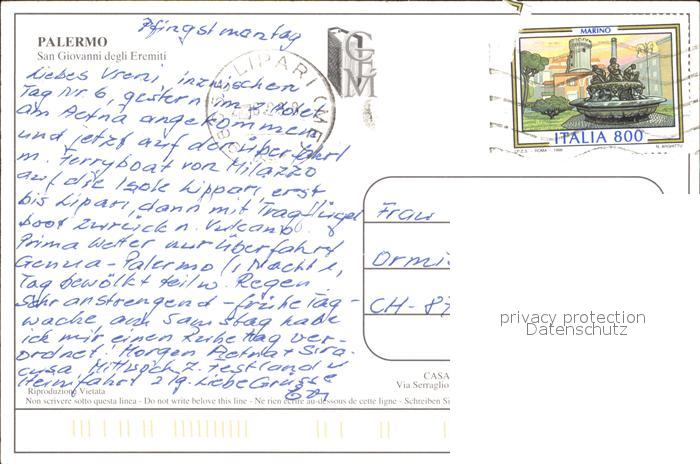 Pfingstmontag
PALERMO
San Giovanni degli Eremiti
Liebes Vreni, inzwischen
Tag Nr 6, gestern im 2. Hotel
am Aetna angekommen
und jetzt auf der Überfahrt
m. Ferryboat von Milazzo
auf die Isole Lippari erst
bis Lipari dann mit Tragflügel
boot zurück n. Vulcano.
Prima Wetter nur Überfahrt
Genua - Palermo (1 Nacht 1
Tag bewölkt teilw. Regen.
Sehr anstrengend - frühe Tag-
wache am Samstag habe
ich mir einen Ruhetag ver-
ordnet. Morgen Aetna + Sira-
cusa Mittwoch z. Festland u
Heimfahrt 2 Tg. Liebe Grüsse
Riproduzione Vietata
Non scrivere sotto questa linea - Do not write below this line - Ne rien écrire au-dessous de cette ligne - Schreiben Si
LIPARI
MARINO
ITALIA 800
I.P.Z.S. - ROMA - 1998
Frau
Ormi
CH-87
CASA
Via Serraglio
privacy protection
Datenschutz